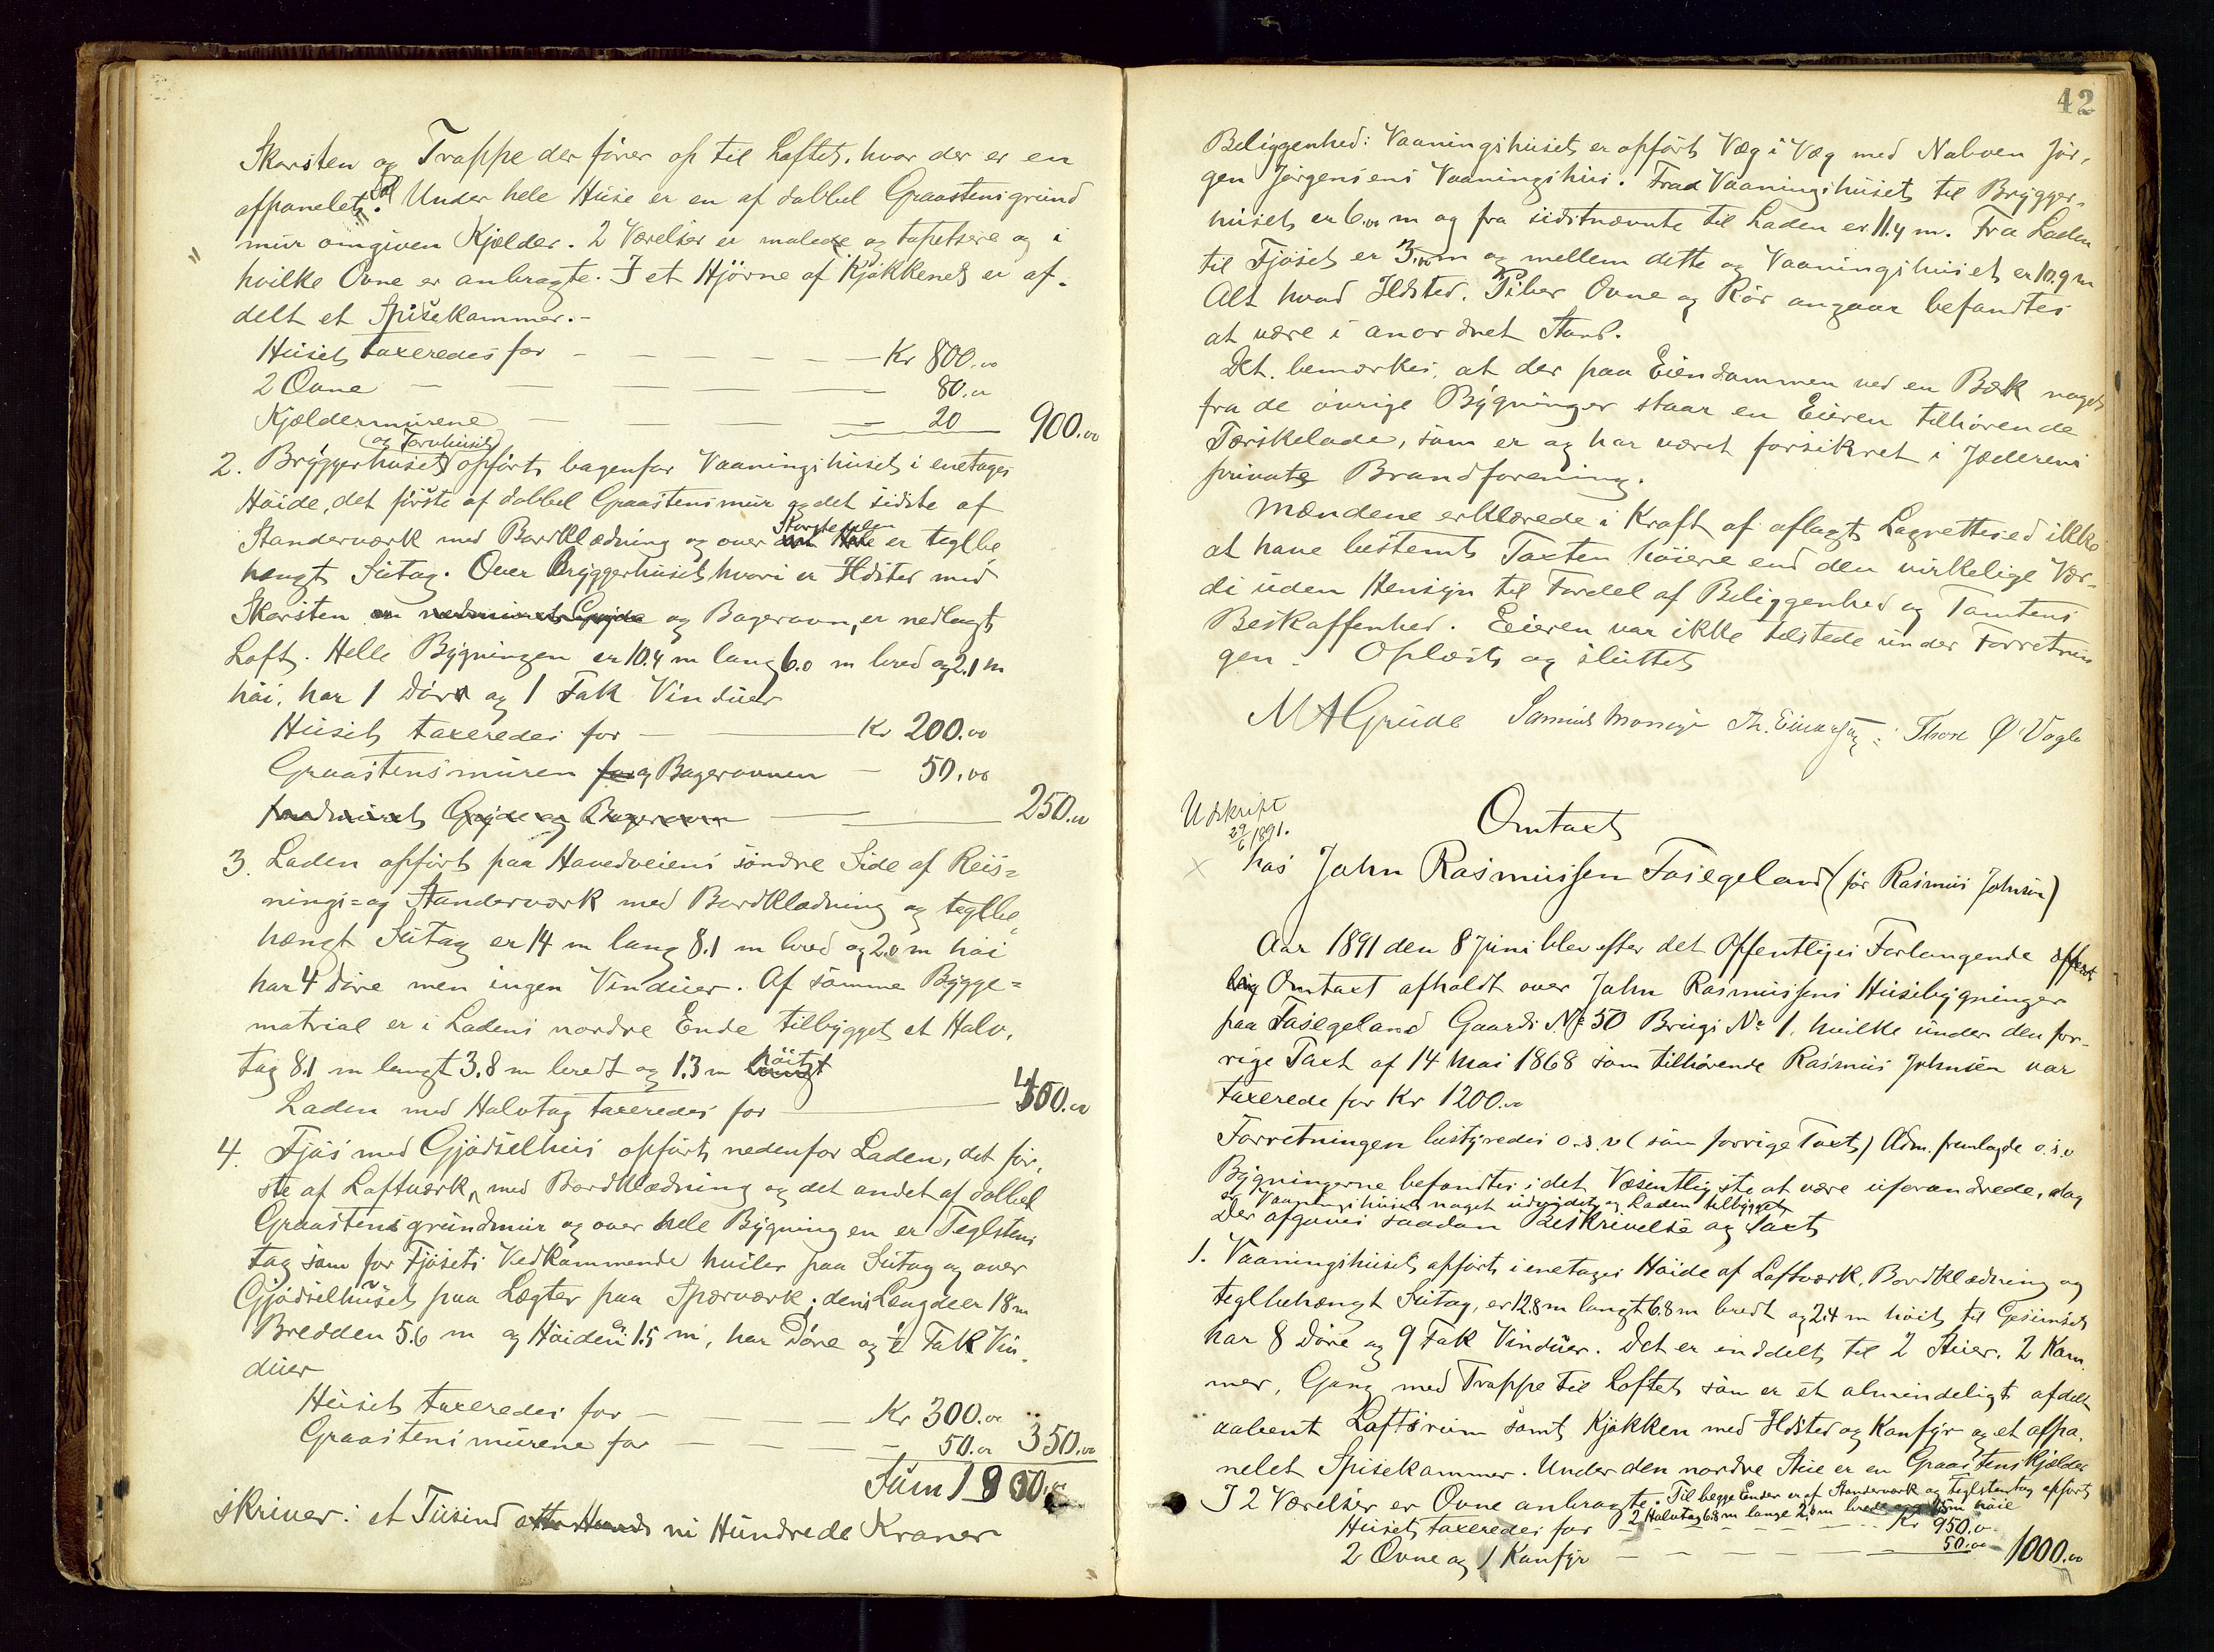 Skorsten og Trappe der fører op til Loftet, hvor der er en
afpanelet. Under hele Huse er en af dobbel Graastensgrund
mur omgiven Kjælder. 2 Værelser er malede og tapetsere og i
hvilke Ovne er anbragte. I et Hjörne af Kjøkkenet er af-
delt et Spisekammer.-
Huset taxeredes for - - - - Kr 800.00
2 Ovne - - - - 80.00
Kjældermurene - - - 20 900.00
og Torvhuset
2. Bryggerhuset opført bagenfor Vaaningshuset i enetages
Høide, det første af dobbel Graastensmur og det sidste af
Skorstenen
Standerværk med Bordklædning og over er teglbe
hængt Sutag. Over Bryggerhuset hvori er Ildsted med
Skorsten en nedmuret Gryde og Bagerovn, er nedlagt
Loft. Helle Bygningen er 10.4 m lang 6.0 m bred og 2.1 m
høi, har 1 Dör og 1 Fak Vinduer
Huset taxeredes for - - Kr 200.00
Graastensmuren for og Bagerovnen - 50.00
indmuret Gryde og Bagerovn - 250.00
3. Laden opført paa Hovedveiens söndre Side af Reis=
nings= og Standerværk med Bordklædning og teglbe
hængt Sutag er 14 m lang 8.1 m bred og 2.0 m høi
har 4 Döre men ingen Vinduer. Af samme Bygge=
matrial er i Ladens nordre Ende tilbygget et Halv-
høit
tag 8.1 m langt 3.8 m bredt og 1.3 m langt
Laden med Halvtag taxeredes for - 400.00
4. Fjøs med Gjødselhus opført nedenfor Laden, det för-
ste af Loftværk, med Bordklædning og det andet af dobbel
Graastensgrundmur og over hele Bygningen er Teglstens
tag som for Fjøsets Vedkommende hviler paa Sutag og over
Gjødselhuset paa Lægter paa Spærværk; dens Længde er 18 m
Bredden 5.6 m og Høiden 1.5 m, har Döre og ½ Fak Vin-
duer
Huset taxeredes for - - - Kr 300.00
Graastensmurene for - - - 50.00 350.00
Sum 1900.00
skriver: et Tusind otte Hund ni Hundrede Kroner
42
Beliggenhed: Vaaningshuset er opført Væg i Væg med Naboen Jør-
gen Jørgensens Vaaningshus. Fra Vaaningshuset til Brygger-
huset er 6.00 m og fra sidstnævnte til Laden er 11.4 m. Fra Laden
til Fjøset er 3.00 m og mellem dette og Vaaningshuset er 10.9 m
Alt hvad Ildsted, Piber Ovne og Rör angaar befandtes
at være i anordnet Stand.
Det bemærkes, at der paa Eiendommen ved en Bæk noget
fra de øvrige Bygninger staar en Eieren tilhørende
Tærskelade, som er og har været forsikret i Jæderens
private Brandforening.
Mændene erklærede i Kraft af aflagt Lagrettesed ikke
at have bestemt Taxten høiere end den virkelige Vær-
di uden Hensyn til Fordel af Beliggenhed og Tomtens
Beskaffenhed. Eieren var ikke tilstede under Forretnin
gen. Oplæst og sluttet
M A Grude Th. Thore Ø Vagle
Udskrift
29/6 1891.
Omtaxt
hos John Rasmussen Fosegeland (før Rasmus Johnsen)
Aar 1891 den 8 Juni blev efter det Offentliges Forlangende offent
lig Omtaxt afholdt over John Rasmussens Husebygninger
paa Fosegeland Gaards No 50 Brugs No 1, hvilke under den for-
rige Taxt af 14 Mai 1868 som tilhørende Rasmus Johnsen var
taxerede for Kr 1200.00
Forretningen bestyredes o.s.v. (som forrige Taxt) Adm. fremlagde o.s.v
Bygningerne befandtes i det Væsentligste at være uforandrede, dog
er Vaaningshuset noget udvidet og Laden tilbygget
Der afgaves saadan Beskrivelse og Taxt
1. Vaaningshuset opført i enetages Høide af Loftværk, Bordklædning og
teglbehængt Sutag, er 12.8 m langt 6.8 m bredt og 2.4 m høit til Gesimset
har 8 Döre og 9 Fak Vinduer. Det er inddelt til 2 Stuer, 2 Kam-
mer, Gang med Trappe til Loftet som er et almindeligt afdelt
aabent Loftsrum samt Kjøkken med Ildsted og Komfyr og et afpa-
nelet Spisekammer. Under den nordre Stue er en Graastenskjælder
I 2 Værelser er Ovne anbragte. Til begge Ender er af Standerværk og Teglstentag opført
2 Halvtag 6.8 m lange 2.0 m brede og 1.5 m høie
Huset taxeredes for - - - Kr 950.00
2 Ovne og 1 Komfyr - - - 50.00 1000.00